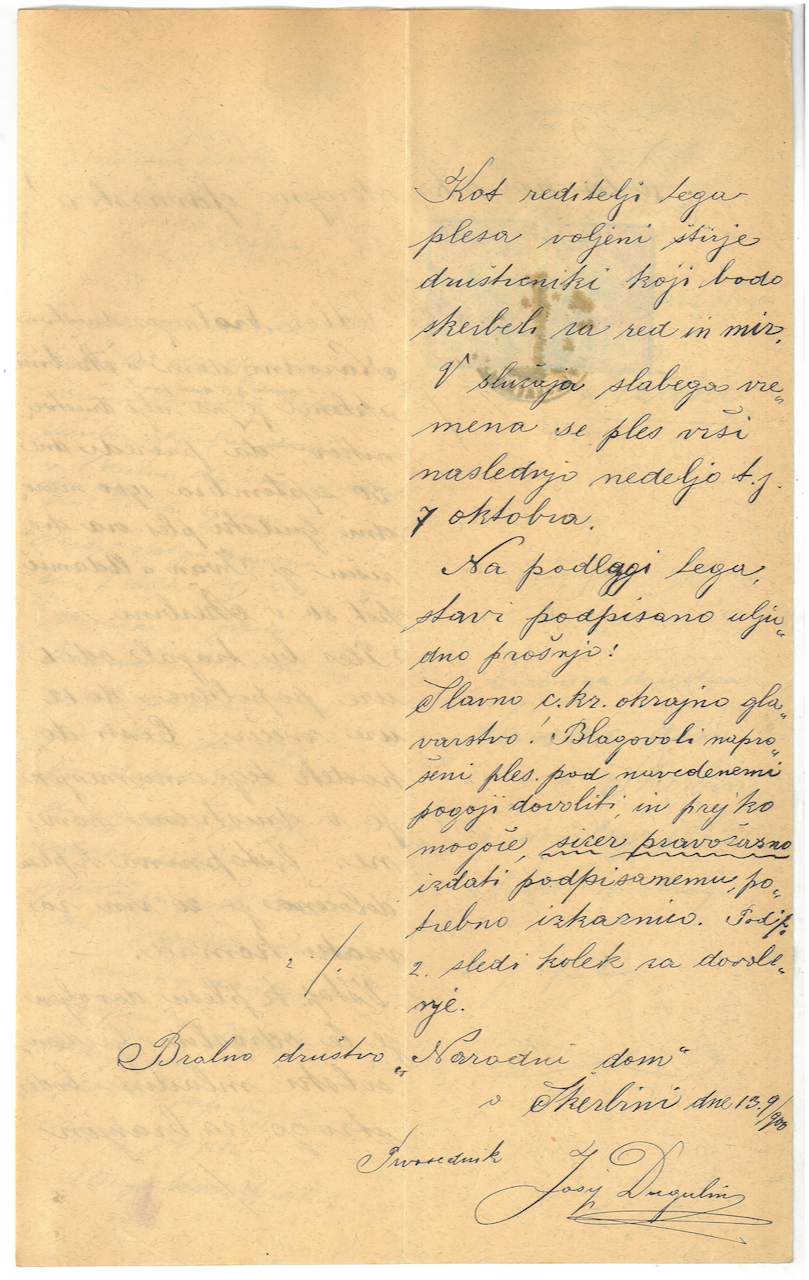 Kot reditelji tega
plesa voljeni štirje
društveniki koji bodo
skerbeli za red in mir.
V slučaja slabega vre„
mena se ples vrši
naslednjo nedeljo t.j.
7 oktobra.
Na podlagi tega,
stavi podpisano ulju„
dno prošnjo!
Slavno c. kr. okrajno gla„
varstvo! Blagovoli napro„
šeni ples. pod navedenemi
pogoji dovoliti, in prej ko
mogoče, sicer pravočasno
izdati podpisanemu, po„
trebno izkaznico. Pod ·/.
2. sledi kolek za dovole„
nje.
2 ·/.
Bralno društvo „Narodni dom"
v Škerbini dne 13.9/900
Josip Dugulin